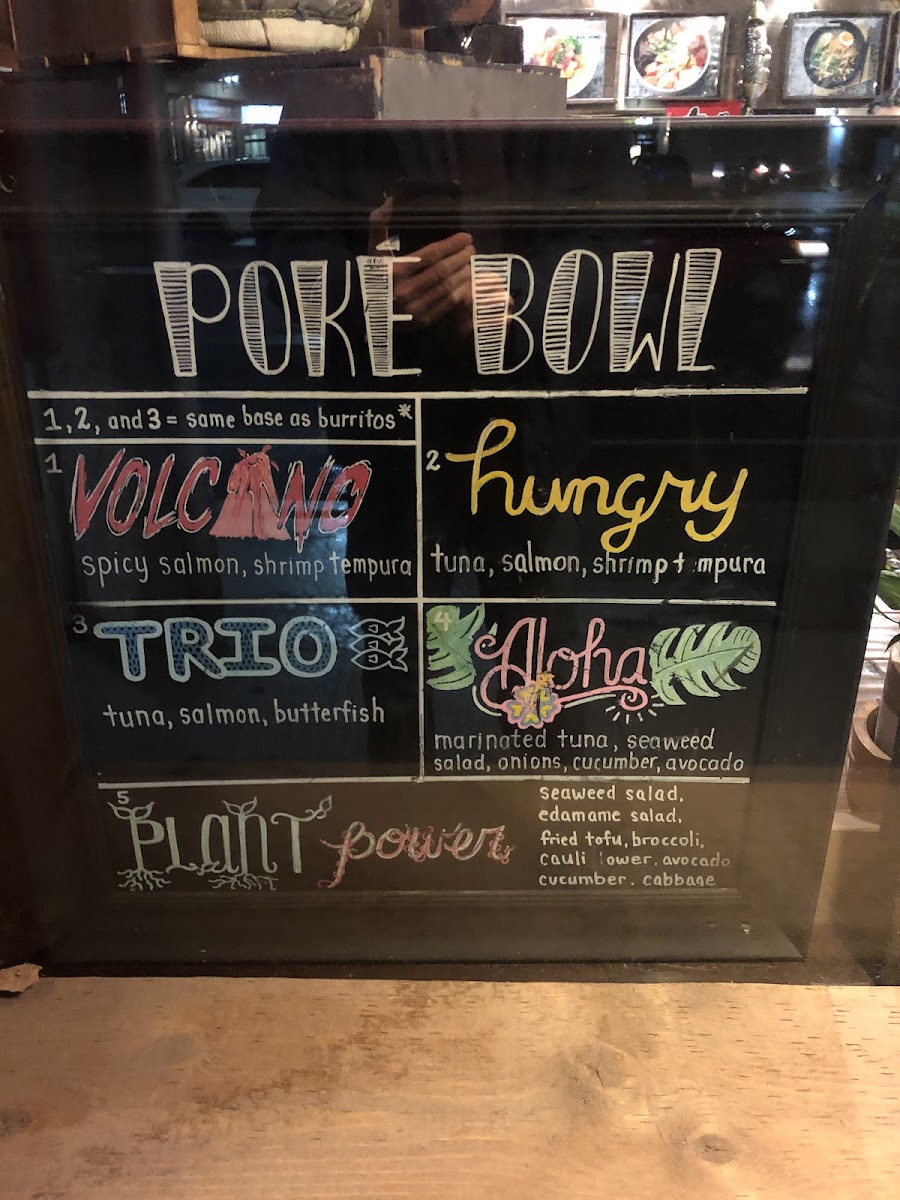 POKE BOWL
1, 2, and 3 = same base as burritos*
1 VOLCANO
spicy salmon, shrimp tempura
2 hungry
tuna, salmon, shrimp t mpura
3 TRIO
tuna, salmon, butterfish
4 Aloha
marinated tuna, seaweed
salad, onions, cucumber, avocado
5 PLANT power
seaweed salad,
edamame salad,
fried tofu, broccoli,
cauli lower, avocado
cucumber, cabbage